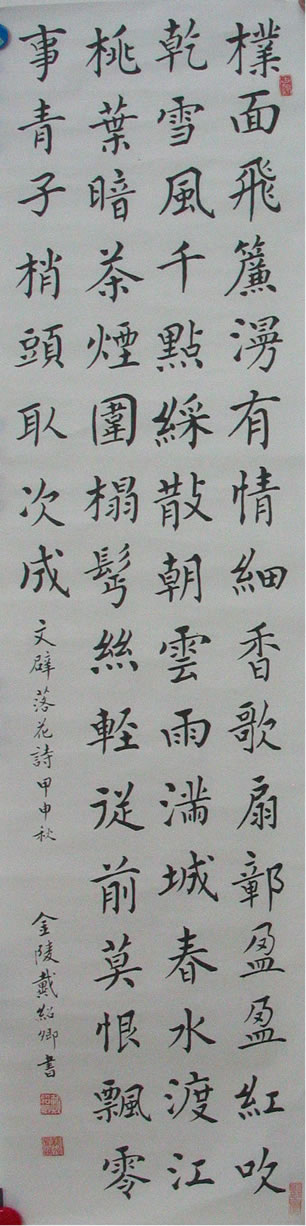 樸面飛簾漫有情細香歌扇鄣盈盈紅吹
乾雪風千點綵散朝雲雨滿城春水渡江
桃葉暗茶煙圍榻鬢絲軽從前莫恨飄零
事青子梢頭取次成
文壁落花詩甲申秋
金陵戴紹卿書